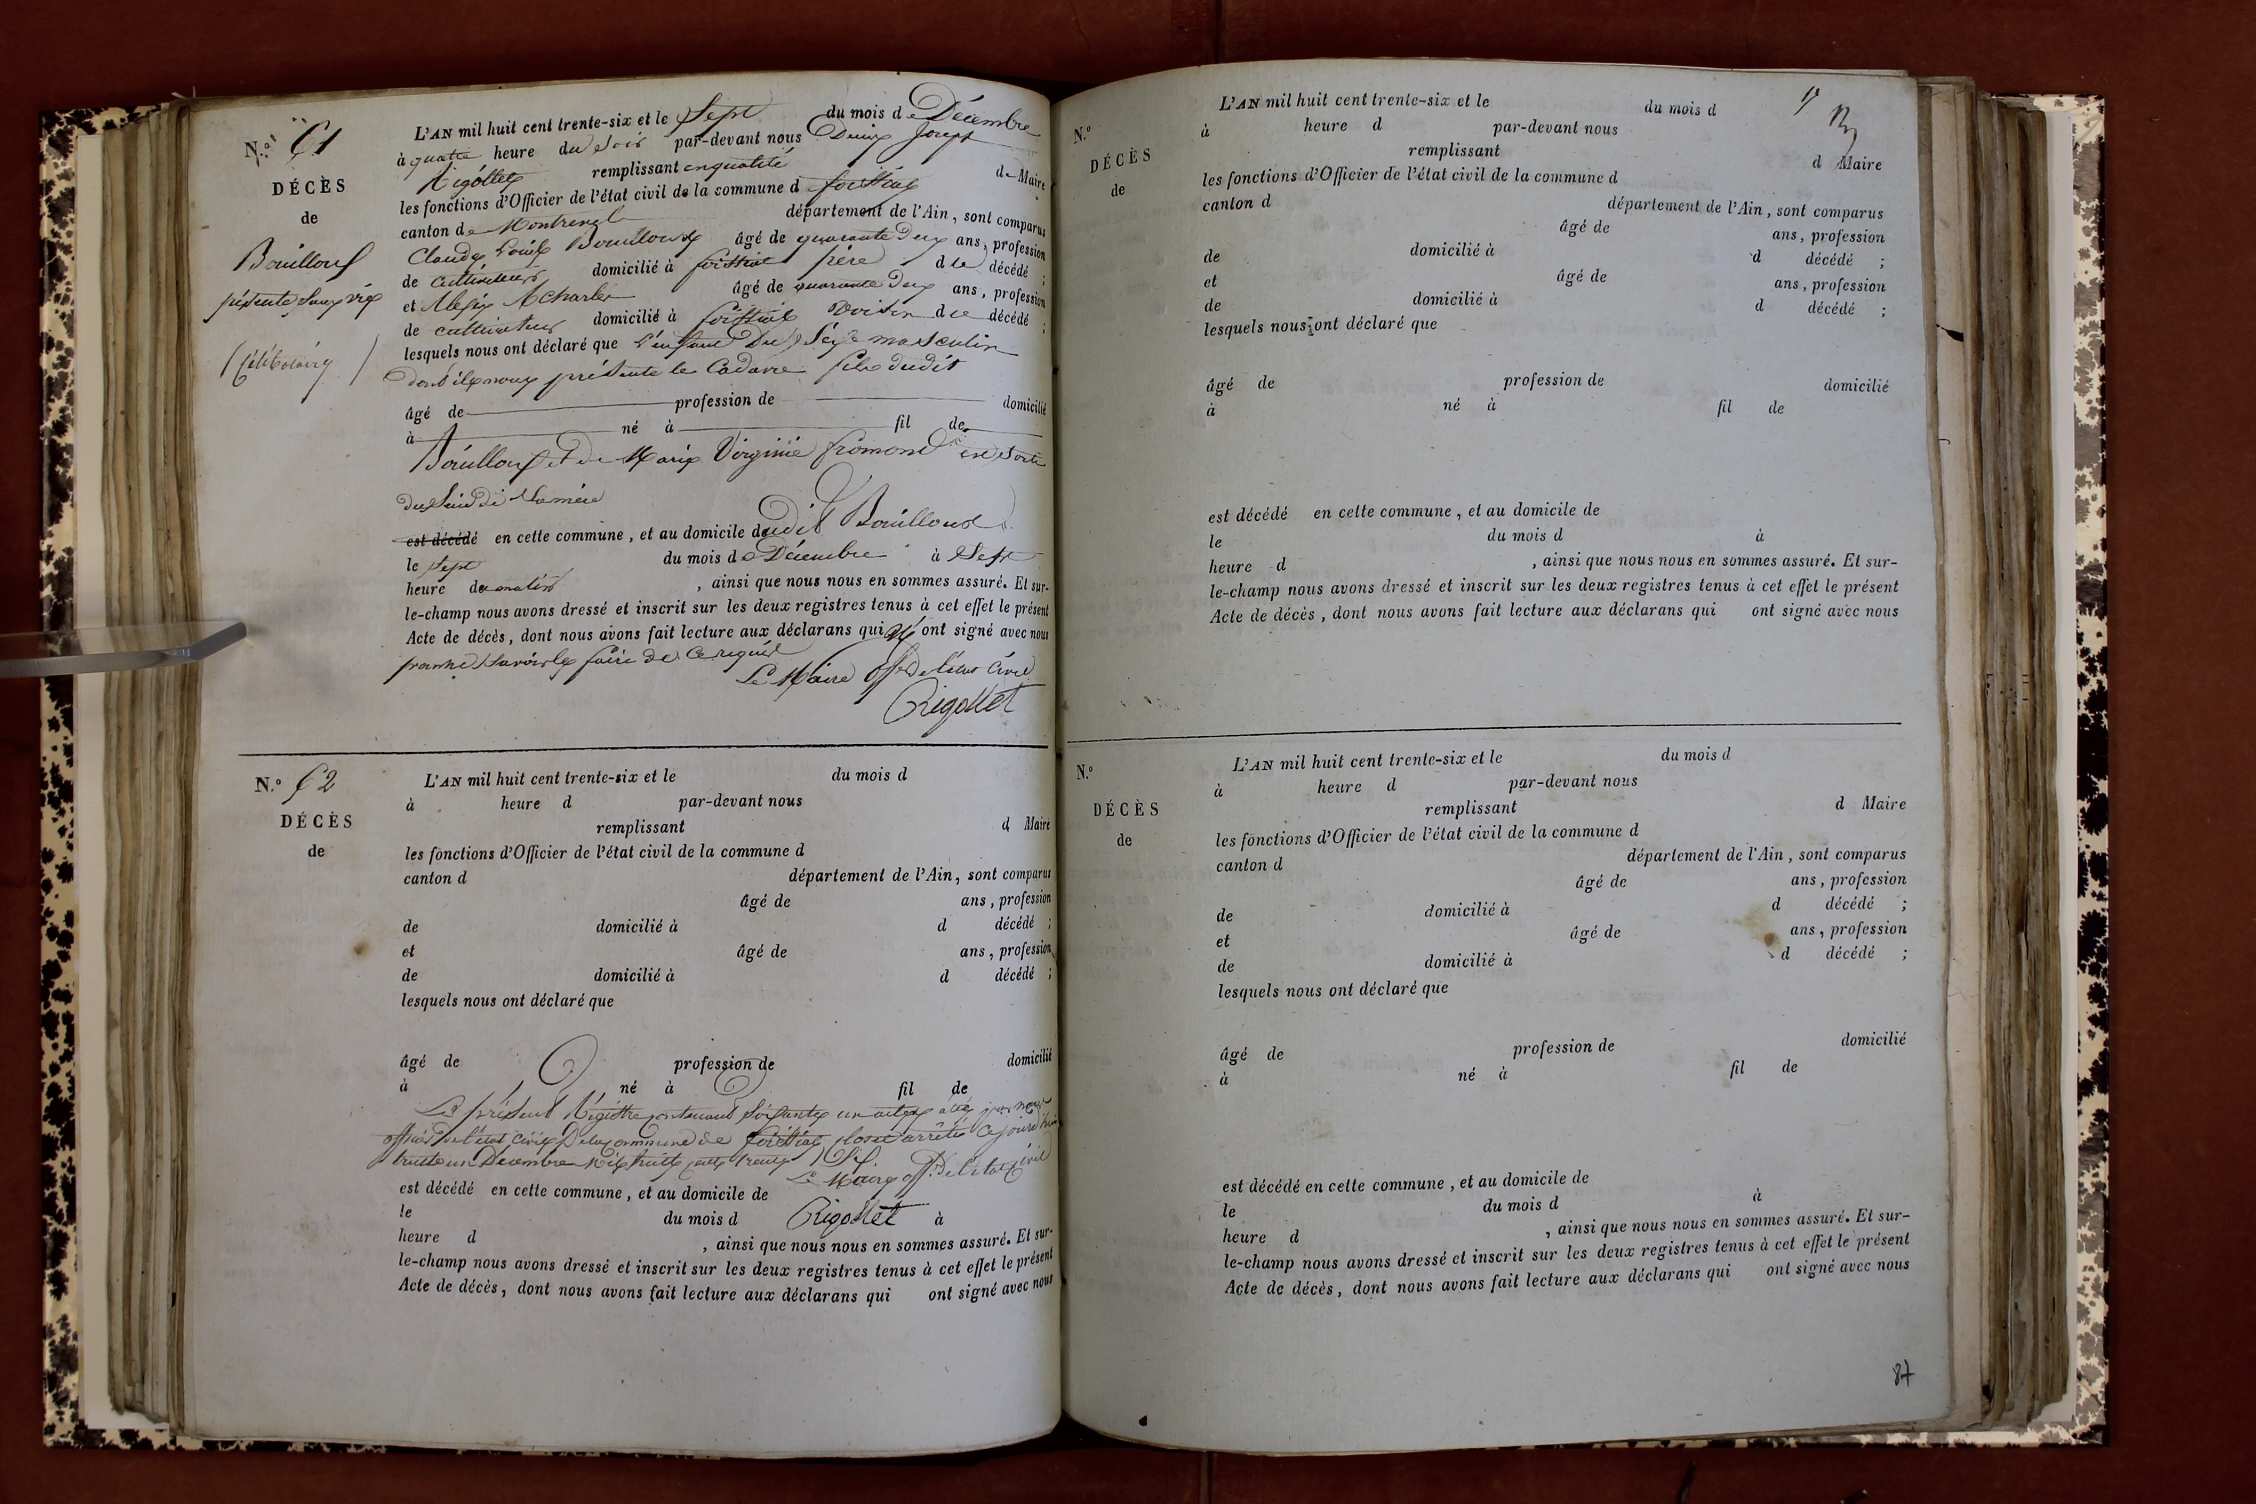 N.º 61
DÉCÈS
de
Bouilloux
présenté sans vie
(Célibataire)
L'AN mil huit cent trente-six et le Sept du mois de Décembre
à quatre heure du Soir par-devant nous Denis Joseph
Rigollet remplissant en qualité de Maire
les fonctions d'Officier de l'état civil de la commune d foissiat
canton de Montrevel département de l'Ain, sont comparus
Claude Louis Bouilloux âgé de quarante Deux ans, profession
de cultivateur domicilié à foissiat père d le décédé ;
et Alexis Acharlé âgé de quarante Deux ans, profession
de cultivateur domicilié à foissiat Voisin d le décédé ;
lesquels nous ont déclaré que l'enfant Du Séxe masculin
dont ils nous présente le Cadavre fils dudit
âgé de profession de domicilié
à né à fil de
Bouilloux et de Marie Virginie fromont est Sorti
du Sein de Sa mère
est décédé en cette commune, et au domicile dudit Bouilloux
le Sept du mois de Décembre à Sept
heure du matin , ainsi que nous nous en sommes assuré. Et sur-
le-champ nous avons dressé et inscrit sur les deux registres tenus à cet effet le présent
Acte de décès, dont nous avons fait lecture aux déclarans qui N' ont signé avec nous
pour ne Savoir le faire de Ce requis
Le Maire off. de l'état Civil
Rigollet
N.º 62
DÉCÈS
de
L'AN mil huit cent trente-six et le du mois d
à heure d par-devant nous
remplissant d Maire
les fonctions d'Officier de l'état civil de la commune d
canton d département de l'Ain, sont comparus
âgé de ans, profession
de domicilié à d décédé ;
et âgé de ans, profession
de domicilié à d décédé ;
lesquels nous ont déclaré que
âgé de profession de domicilié
à né à fil de
Le présent Régistre contenant Soixante un actes a été par nous
officier de l'état Civil De la commune de foissiat clos et arrêté Ce jourd'hui
trente un Décembre Mil huit cent trente Six
Le Maire off. de l'état Civil
est décédé en cette commune, et au domicile de
le du mois d Rigollet à
heure d , ainsi que nous nous en sommes assuré. Et sur-
le-champ nous avons dressé et inscrit sur les deux registres tenus à cet effet le présent
Acte de décès, dont nous avons fait lecture aux déclarans qui ont signé avec nous
N.º
DÉCÈS
de
L'AN mil huit cent trente-six et le du mois d
à heure d par-devant nous
remplissant d Maire
les fonctions d'Officier de l'état civil de la commune d
canton d département de l'Ain, sont comparus
âgé de ans, profession
de domicilié à d décédé ;
et âgé de ans, profession
de domicilié à d décédé ;
lesquels nous ont déclaré que
âgé de profession de domicilié
à né à fil de
est décédé en cette commune, et au domicile de
le du mois d à
heure d , ainsi que nous nous en sommes assuré. Et sur-
le-champ nous avons dressé et inscrit sur les deux registres tenus à cet effet le présent
Acte de décès, dont nous avons fait lecture aux déclarans qui ont signé avec nous
N.º
DÉCÈS
de
L'AN mil huit cent trente-six et le du mois d
à heure d par-devant nous
remplissant d Maire
les fonctions d'Officier de l'état civil de la commune d
canton d département de l'Ain, sont comparus
âgé de ans, profession
de domicilié à d décédé ;
et âgé de ans, profession
de domicilié à d décédé ;
lesquels nous ont déclaré que
âgé de profession de domicilié
à né à fil de
est décédé en cette commune, et au domicile de
le du mois d à
heure d , ainsi que nous nous en sommes assuré. Et sur-
le-champ nous avons dressé et inscrit sur les deux registres tenus à cet effet le présent
Acte de décès, dont nous avons fait lecture aux déclarans qui ont signé avec nous
87